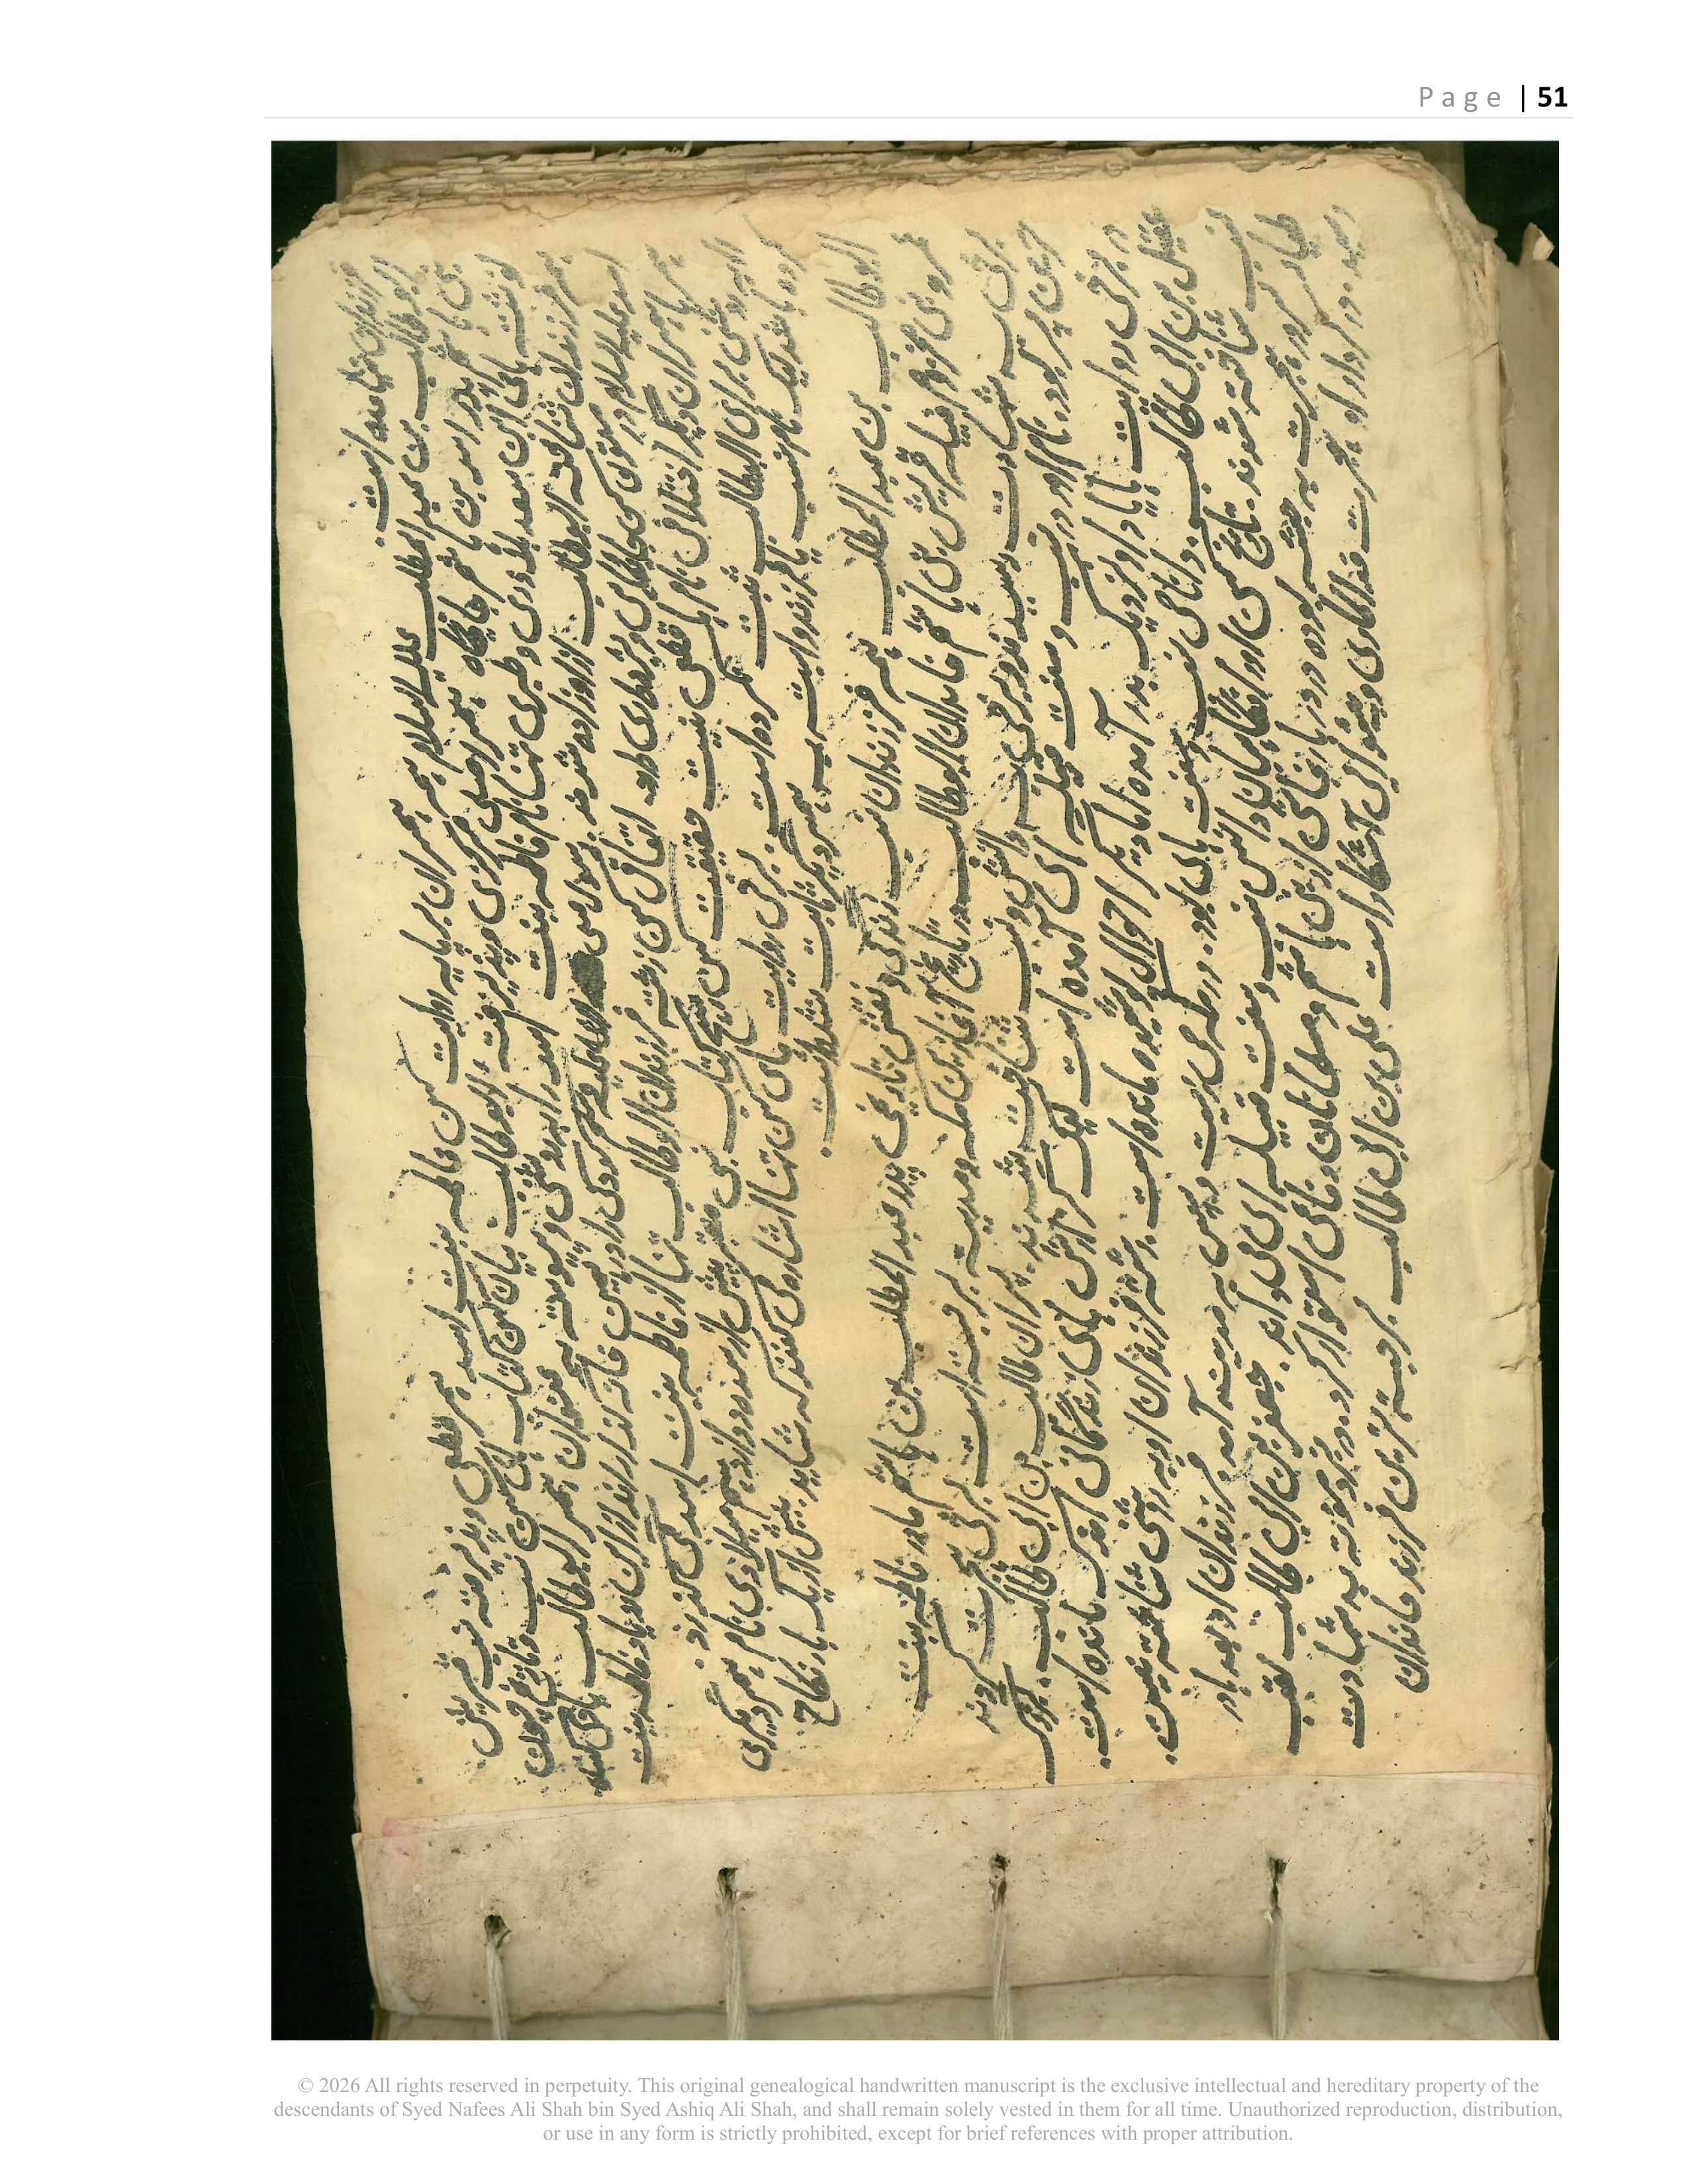 Page | 51
است.
ابو طالب بن عبدالمطلب علیه السلام همسران بر پایه روایت کهن فاطمه بنت اسد همسر قطعی و پذیرفته نسب قریش
بنی هاشم پدر اسد بن هاشم جایگاه همسر اصلی مرکزی و پذیرفته ابوطالب بیان کهن کتاب های کهن نسب و تاریخ چون
نوشته های ابن سعد بلاذری و طبری تنها نام فاطمه بنت اسد را به روشنی و پیوسته به عنوان همسر ابوطالب یاد می کنند
همه فرزندان شناخته ابوطالب از او زاده شدند رسول صلی الله علیه وسلم کودکی را در همین خانه گذراند از این رو یاد فاطمه بنت
اسد علیه السلام در متون جایگاهی دارد اتفاق کهن رشته فرزندان ابوطالب تنها از فاطمه بنت اسد می گذرد.
همسران دیگر اختلاف نام قطعی نیست حقیقت کهن هیچ کتاب نسبی معتبر پیش از سده دوازدهم میلادی نام همسر دیگری
را به روشنی برای ابوطالب ثبت نکرده است. برخی روایت های کهن تنها اشاره می کنند که شاید بیش از یک بار نکاح
کرده باشد لیک نام نسب یا فرزند وابسته به همسر دیگر ثابت نشده است.
ابوطالب بن عبدالمطلب فرزندان نسب زندگی و نقش تاریخی پدر عبدالمطلب بن هاشم مادر فاطمه بنت
عمرو بنی مخزوم قبیله قریش بنی هاشم خاندان ابوطالب در تاریخ آغازین مکه و مدینه برجسته است برخی هجرت کردند
برخی به شهادت رسیدند و برخی به دانش و نسب شناخته شدند. پسران طالب بن ابی طالب. بزرگ
ترین پسر بود. نام او در نسب و سنت قبیله ای آمده است لیک گزارش های زندگانی اندک مانده است.
در برخی روایت ها یاد او نزدیک بدر آمده اما دیگر احوال پوشیده مانده است. رشته فرزندان او به روشنی شناخته نیست.
عقیل بن ابی طالب. دانای نسب و سنت های بود. در مکه می زیست و سپس به مدینه آمد فرزندان او
نسب شناخته شدند. تاریخ کهن او را از نگاهبان دانش نسب و سنت قبیله ای می داند. جعفر بن ابی طالب لقب
طیار. در هجرت به حبشه بوده در دربار نجاشی از بنی هاشم و مسلمانان دفاع استوار کرد. در غزوه مؤته به شهادت
رسید. در کردار او هجرت فداکاری و پیشوایی آشکار است علی بن ابی طالب برجسته ترین فرزند خاندان
© 2026 All rights reserved in perpetuity. This original genealogical handwritten manuscript is the exclusive intellectual and hereditary property of the
descendants of Syed Nafees Ali Shah bin Syed Ashiq Ali Shah, and shall remain solely vested in them for all time. Unauthorized reproduction, distribution,
or use in any form is strictly prohibited, except for brief references with proper attribution.